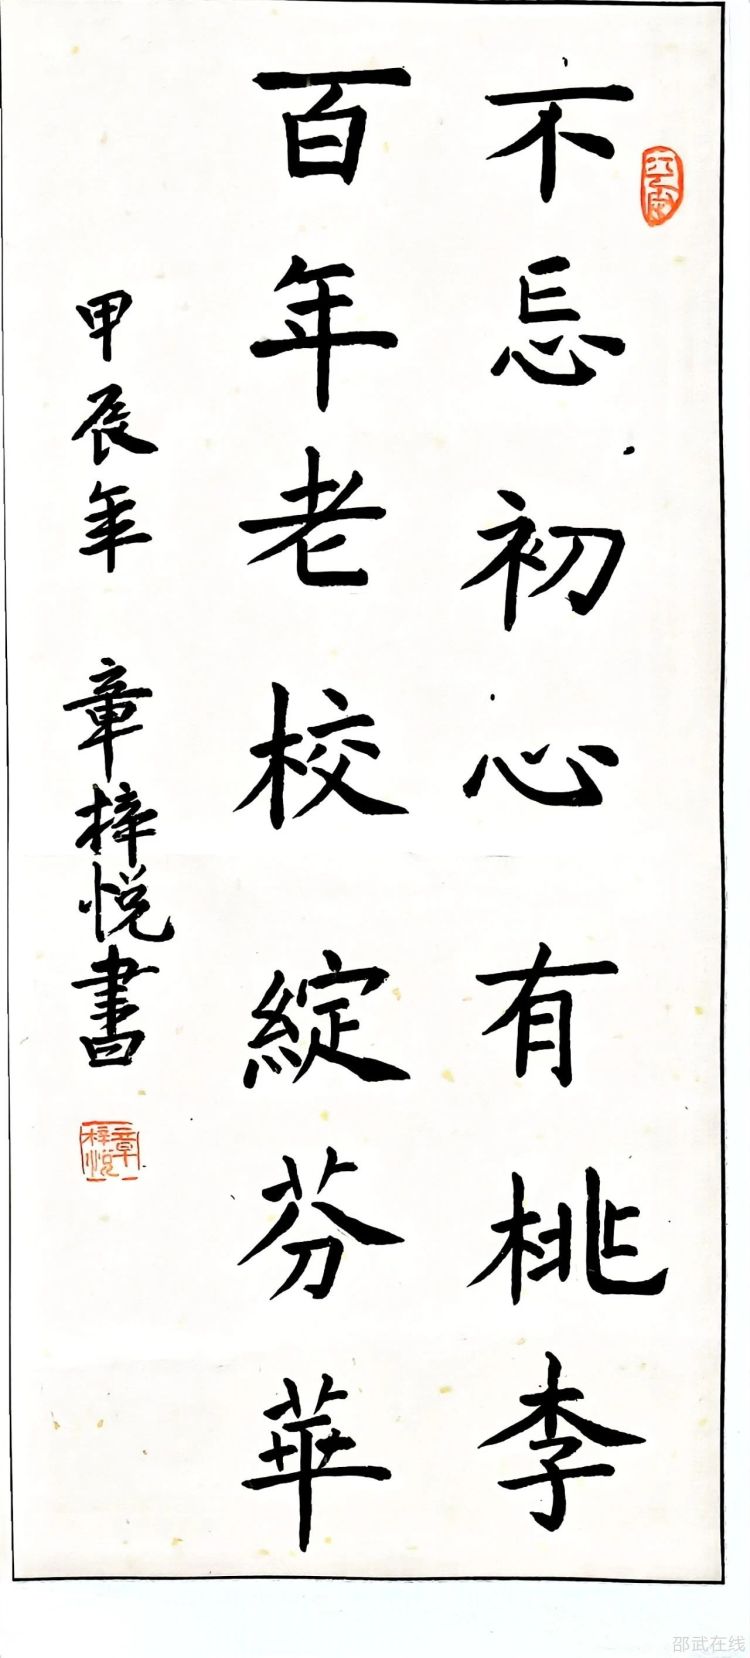 不忘初心有桃李
百年老校綻芬華
甲辰年 章梓悦書
章梓悦
邵武在线